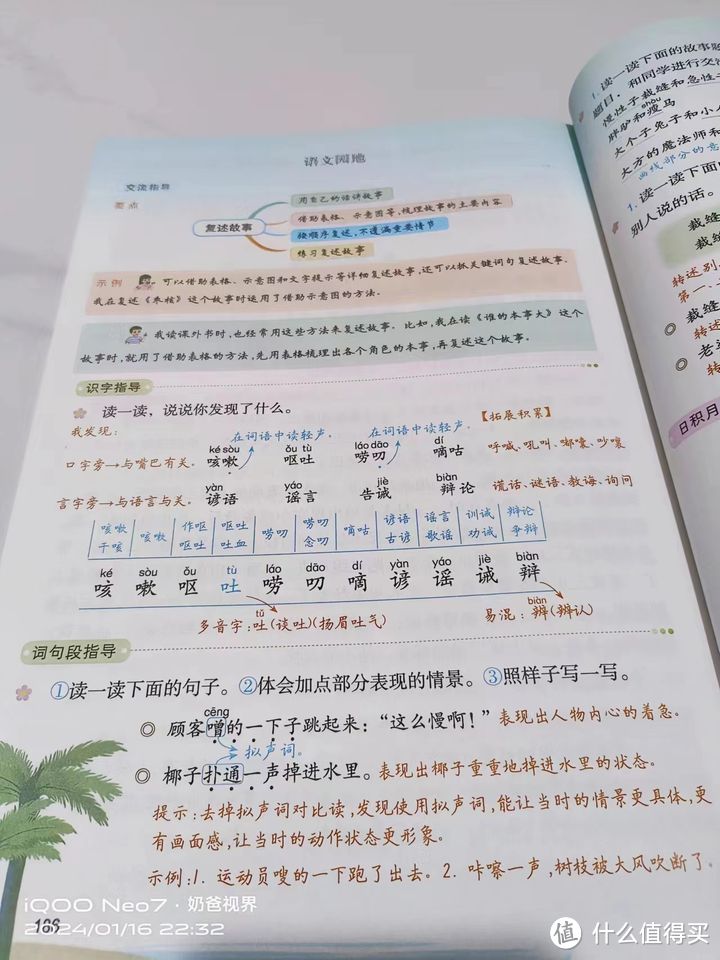 语文园地
交流指导
要点
复述故事
用自己的话讲故事
借助表格、示意图等，梳理故事的主要内容
按顺序复述，不遗漏重要情节
练习复述故事
示例
可以借助表格、示意图和文字提示等详细复述故事，还可以抓关键词句复述故事。
我在复述《枣核》这个故事时运用了借助示意图的方法。
我读课外书时，也经常用这些方法来复述故事。比如，我在读《谁的本事大》这个
故事时，就用了借助表格的方法，先用表格梳理出各个角色的本事，再复述这个故事。
识字指导
读一读，说说你发现了什么。
我发现：
在词语中读轻声。
在词语中读轻声。
【拓展积累】
ké sòu ǒu tù láo dāo dí
口字旁→与嘴巴有关。 咳嗽 呕吐 唠叨 嘀咕 呼喊、吼叫、嘟囔、吵嚷
yàn yáo jiè biàn
言字旁→与语言与关。 谚语 谣言 告诫 辩论 谎话、谜语、教诲、询问
咳嗽 咳嗽 作呕 呕吐 唠叨 唠叨 嘀咕 谚语 谣言 训诫 辩论
干咳 呕吐 吐血 念叨 古谚 歌谣 劝诫 争辩
ké sòu ǒu tù láo dāo dí yàn yáo jiè biàn
咳 嗽 呕 吐 唠 叨 嘀 谚 谣 诫 辩
tǔ
多音字：吐(谈吐)(扬眉吐气)
biàn
易混：辨(辨认)
词句段指导
①读一读下面的句子。②体会加点部分表现的情景。③照样子写一写。
cēng
◎ 顾客噌的一下子跳起来：“这么慢啊！” 表现出人物内心的着急。
拟声词。
◎ 椰子扑通一声掉进水里。表现出椰子重重地掉进水里的状态。
提示：去掉拟声词对比读，发现使用拟声词，能让当时的情景更具体，更
有画面感，让当时的动作状态更形象。
示例：1. 运动员嗖的一下跑了出去。2. 咔嚓一声，树枝被大风吹断了。
iQOO Neo7 · 奶爸视界
2024/01/16 22:32
1.读一读下面的故事题
题目，和同学进行交流
慢性子裁缝和急性子
shòu
胖驴和瘦马
大个子兔子和小
大方的魔法师和
画线部分的意
1.读一读下面
别人说的话。
裁缝
裁缝
转述别
第一、
◎ 裁缝
转述
◎ 老
转
日积月
值 什么值得买